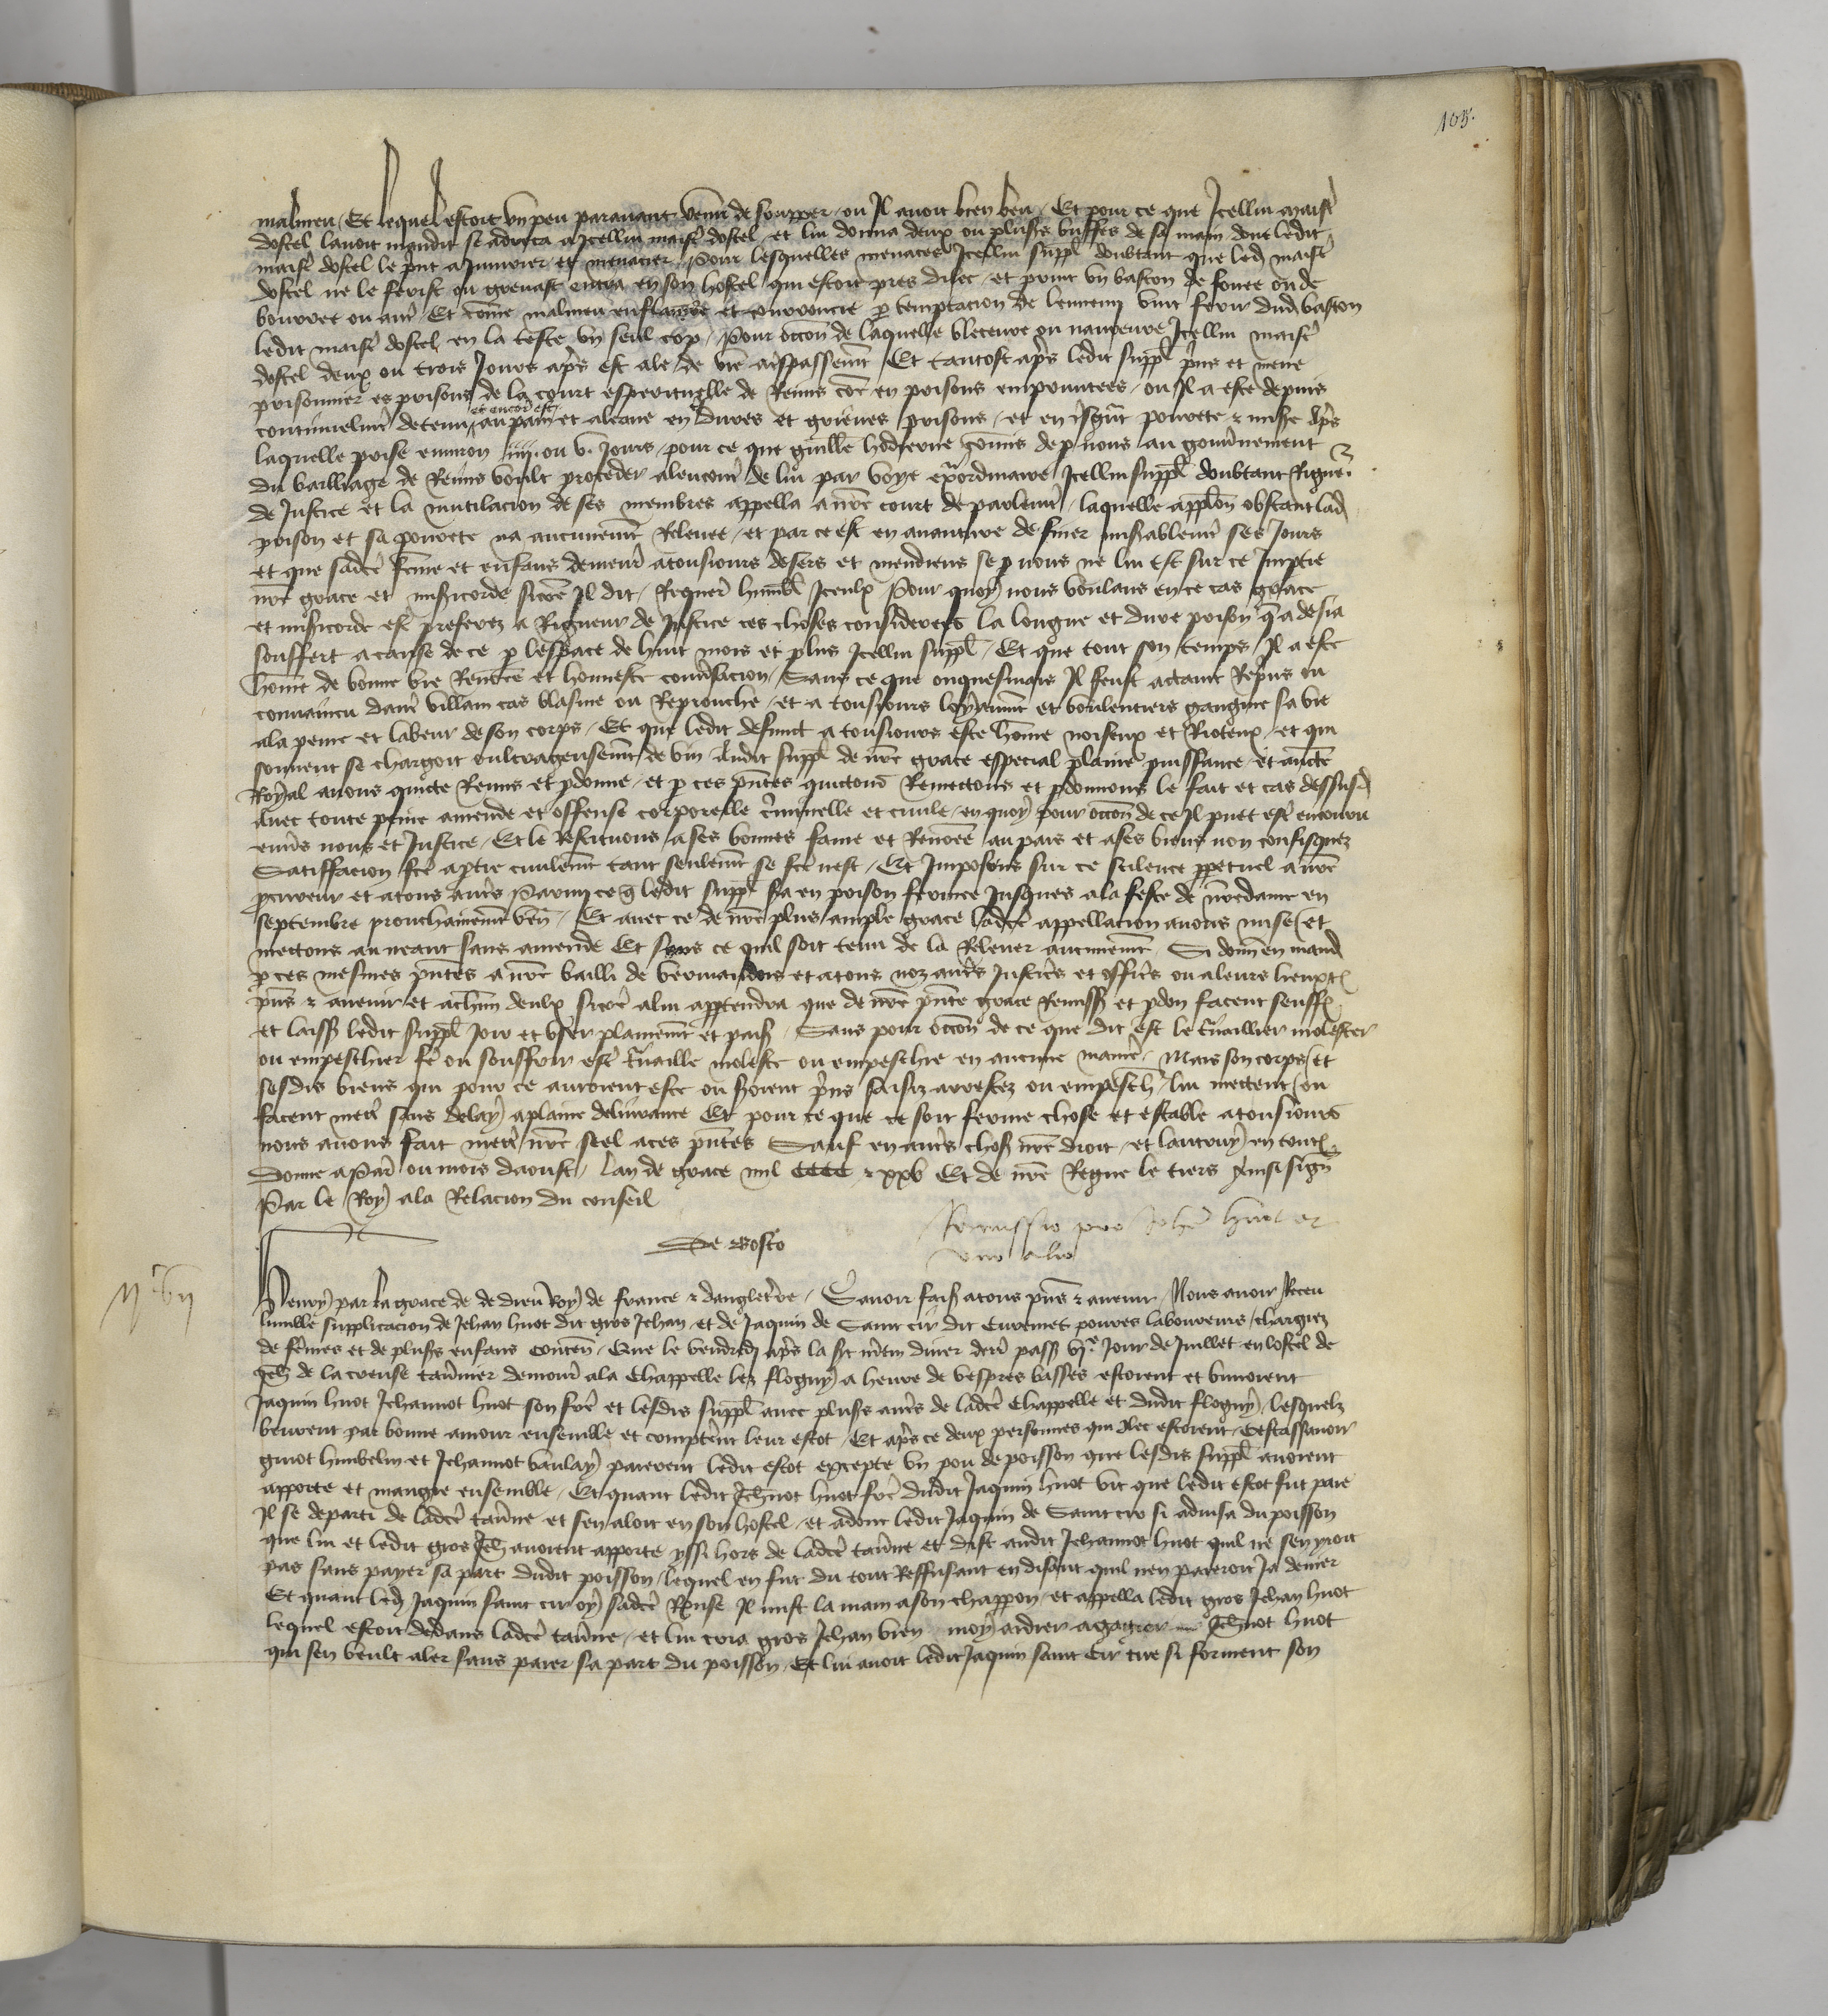 105.
malmeu / Et lequel estoit vn peu parauant venu de soupper / ou Il auoit bien beu / Et pour ce que Icellui maistr
dostel lauoit maudit se adreca a Icellui maistr dostel / et lui donna deux ou plusrs buffes de sa main dont ledit
maistr dostel le prist a Iniurier et menacier / Pour lesquelles menaces Icellui suppl doubtant que led maistr
dostel ne le ferist ou greuast entra en son hostel qui estoit pres dilec / et print vn baston de fouet ou de
bourree ou autr Et come malmeu enflambe et courroucie p temptacion de lennemi vint ferir dud baston
ledit maistr dostel en la teste vn seul cop / Pour occon de laquelle bleceure ou naureure Icellui maistr
dostel deux ou trois Iours apres est ale de vie a trespassemt Et tantost apres ledit suppl prins et mene
prisonnier es prisons de la court esperituelle de Reims coe en prisons empruntees / ou Il a este depuis
continuelmt detenu et encor est au pain et aleaue en dures et grieues prisons / et en tresgrant pourete & misere Apres
laquelle prise enuiron iiii. ou v. Iours / pour ce que guille hodierne comis de p nous au gouunement
du bailliage de Reims voult proceder alencontr de lui par voye exordinaire Icellui suppl doubtant Rigueur
de Iustice et la mutilacion de ses membres appella a nre court de parlemt / laquelle applon obstant lad
prison et sa pourete na aucunemt Releuee / et par ce est en auanture de finer miserablemt ses Iours
et que sadce feme et enfans demeurt atousiours desers et mendiens se p nous ne lui est sur ce Imptie
nre grace et misericorde sicoe Il dit / Requert humblt Iceulx Pour quoy nous voulans en ce cas grace
et misericorde estr preferez a Rigueur de Iustice ces choses considerees La longue et dure prison qa desia
souffert a cause de ce p lespace de huit mois et plus Icellui suppl / Et que tout son temps / Il a este
home de bonne vie Renomee et honneste conuersacion / Sans ce que onquesmais Il feust attaint Reprins ou
conuaincu daucun villain cas blasme ou Reprouche / et a tousiours loyaumt et voulentiers gaingnie sa vie
ala peine et labeur de son corps / Et que ledit defunct a tousiours este home noiseux et Rioteux / et qui
souuent se chargoit oultrageusemt de vin Audit suppl de nre grace especial plaine puissance / et aucte
Royal auons quicte Remis et pdonne / et p ces pntes quictons Remettons et pdonnons le fait et cas dessusd
Auec toute peine amende et offense corporelle criminelle et ciuile / en quoy pour occon de ce Il puet estr encouru
enurs nous et Iustice / Et le Restituons a ses bonnes fame et Renomee au pais et a ses biens non confisquez
Satisfacion fce aptie ciuilemt tant seulemt se fce nest / Et Imposons sur ce scilence ppetuel a nre
procureur et atous autrs Parmi ce q ledit suppl sera en prison fermee Iusques ala feste de nredame en
septembre prouchainemt ven / Et auec ce de nre plus ample grace ladce appellacion auons mise et
mettons au neant sans amende Et sans ce quil soit tenu de la Releuer aucunemt Si donnen mand
p ces mesmes pntes a nre bailli de vermandois et atous noz autrs Iusticrs et officrs ou aleurs lieuxt
pns & auenir et achun deulx sicoe alui apptendra que de nre pnte grace Remiss et pdon facent seuffr
et laiss ledit suppl Ioir et vser plainemt et pais / Sans pour occon de ce que dit est le trauaillier molester
ou empeschier fe ou souffrir estr trauaille moleste ou empeschie en aucune manie / Mais son corps et
sesdis biens qui pour ce auroient este ou seroient prins saisiz arrestez ou empesch / lui mettent ou
facent mettr sans delay aplaine deliurance Et pour ce que ce soit ferme chose et estable atousiours
nous auons fait mettr nre scel aces pntes Sauf en autrs chos nre droit / et lautruy en tout
Donne a Par ou mois daoust / lan de grace mil cccc & xxv Et de nre Regne le tiers Ainsi sign
Par le Roy ala Relacion du conseil
De Bosco
Remissio pro Johe huot et
vno alio
Henry par la grace de de dieu Roy de france & dangleterre / Sauoir fais atous pns & auenir / Nous auoir Receu
lumble supplicacion de Iehan huot dit gros Iehan et de Iaquin de Saint cir dit Euremet poures laboureurs / chargiez
de femes et de plusrs enfans conten / Que le vendredi apres la st mtin diuer derr pass vie. Iour de Iuillet en lostel de
Ieh de la creuse tauernier demourt ala Chappelle lez flogny a heure de vespres basses estoient et buuoient
Iaquin huot Iehannot huot son fre et lesdis suppl auec plusrs autrs de ladce Chappelle et dudit flogny / lesquelz
beurent par bonne amour ensemble et compterent leur escot / Et apres ce deux personnes qui Ilec estoient / Cestassauoir
guiot himbelin et Iehannot baulay paierent ledit escot excepte vn pou de poisson que lesdis suppl auoient
apporte et mangie ensemble / Et quant ledit Iehnot huot fre dudit Iaquin huot vit que ledit escot fut paie
Il se departi de ladce tauerne et sen aloit en son hostel / et adont ledit Iaquin de Saint cir si aduisa du poisson
que lui et ledit gros Ieh auoient apporte yssi hors de ladce tauerne et dist audit Iehannot huot quil ne sen yroit
pas sans payer sa part dudit poisson / lequel en fut du tout Reffusant en disant quil nen paieroit Ia denier
Et quant led Iaquin saint cir oy sadce Rponse Il mist la main a son chappon / et appella ledit gros Iehan huot
lequel estoit dedans ladce tauerne / et lui cria gros Iehan vien moy aidier a gaigier Iehnot huot
qui sen veult aler sans paier sa part du poisson / Et lui auoit ledit Iaquin saint Cir tire si forment son